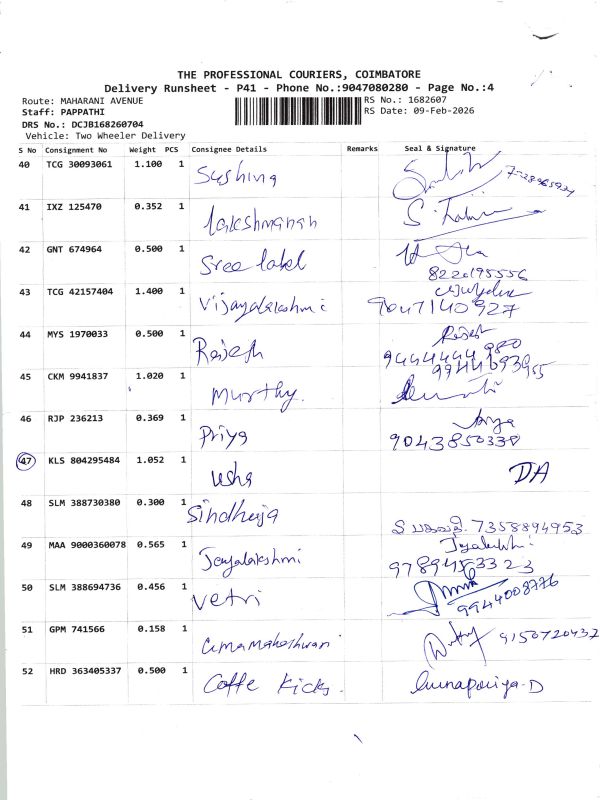 THE PROFESSIONAL COURIERS, COIMBATORE
Delivery Runsheet - P41 - Phone No.:9047080280 - Page No.:4
Route: MAHARANI AVENUE
Staff: PAPPATHI
DRS No.: DCJB168260704
Vehicle: Two Wheeler Delivery
RS No.: 1682607
RS Date: 09-Feb-2026
S No Consignment No Weight PCS Consignee Details Remarks Seal & Signature
40 TCG 30093061 1.100 1 Sushina
41 IXZ 125470 0.352 1 Lakshmanan
42 GNT 674964 0.500 1 Sree label
8220195556
43 TCG 42157404 1.400 1 Vijayalakshmi
9047140927
44 MYS 1970033 0.500 1 Rajesh Rajesh
9444444980
45 CKM 9941837 1.020 1 Murthy.
46 RJP 236213 0.369 1 Priya
9043850338
47 KLS 804295484 1.052 1 Usha DA
48 SLM 388730380 0.300 1 Sindhuja
7358894953
49 MAA 9000360078 0.565 1 Jeyalakshmi
9789453323
50 SLM 388694736 0.456 1 Vetri
9944008776
51 GPM 741566 0.158 1 Umamaheshwari 9150720437
52 HRD 363405337 0.500 1 Coffe Kicks.